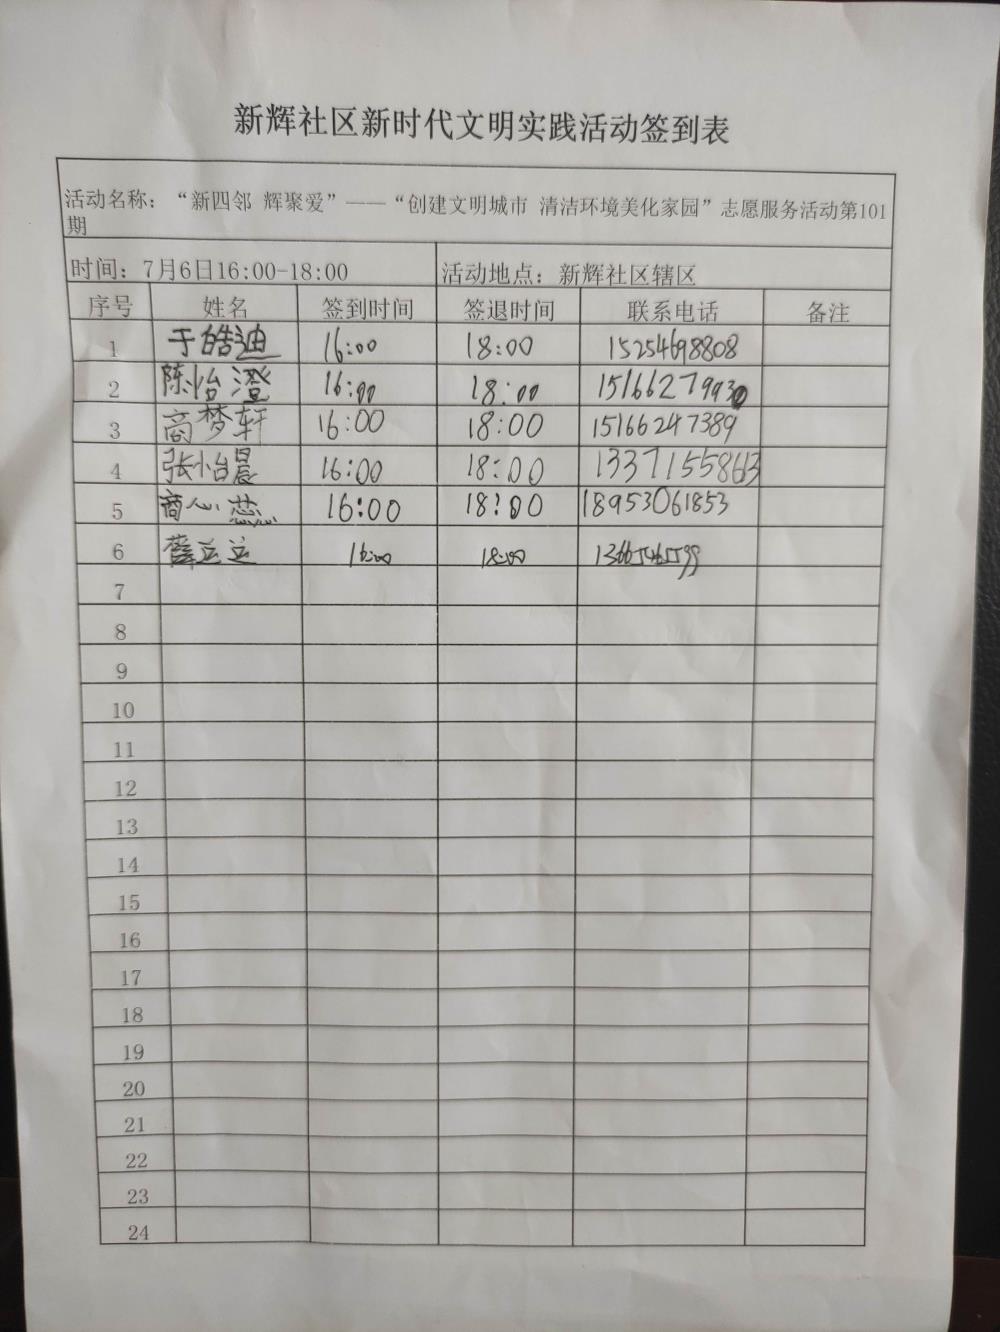 新辉社区新时代文明实践活动签到表
活动名称：“新四邻 辉聚爱”——“创建文明城市 清洁环境美化家园”志愿服务活动第101
期
时间：7月6日16:00-18:00 活动地点：新辉社区辖区
序号 姓名 签到时间 签退时间 联系电话 备注
1 于皓迪 16:00 18:00 15254698808
2 陈怡澄 16:00 18:00
3 商梦轩 16:00 18:00 15166247389
4 张怡晨 16:00 18:00 13371155863
5 商心蕊 16:00 18:00 18953061853
6 16:00 18:00
7
8
9
10
11
12
13
14
15
16
17
18
19
20
21
22
23
24